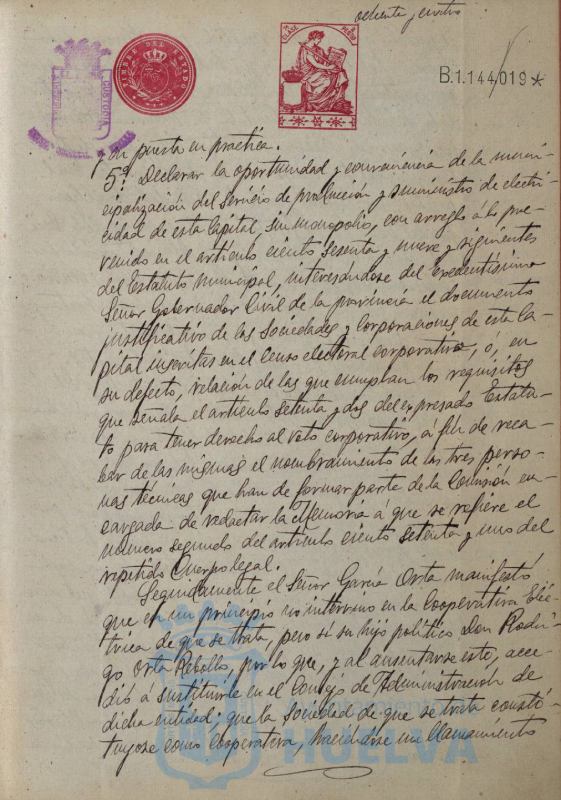 ochenta y cuatro
TIMBRE DEL ESTADO
CLASE
B.1.144,019*
CUSTODIA
y en puesta en práctica.
5º Declarar la oportunidad y conveniencia de la muni-
cipalización del servicio de producción y suministro de electri-
cidad de esta Capital, sin monopolio, con arreglo á lo pre-
venido en el artículo ciento sesenta y nueve y siguientes
del Estatuto Municipal, interesándose del Excelentísimo
Señor Gobernador Civil de la provincia el documento
justificativo de las Sociedades y Corporaciones de esta Ca-
pital inscritas en el Censo electoral corporativo, ó, en
su defecto, relación de las que cumplan los requisitos
que señala el artículo setenta y dos del expresado Estatu-
to para tener derecho al voto corporativo, á fin de reca-
bar de las mismas el nombramiento de las tres perso-
nas técnicas que han de formar parte de la Comisión en-
cargada de redactar la Memoria á que se refiere el
número segundo del artículo ciento setenta y uno del
repetido Cuerpo legal.
Seguidamente el Señor García Orta manifestó
que en un principio no intervino en la Cooperativa Eléc-
trica de que se trata, pero sí su hijo político Don Rodri-
go Orta Rebollo, por lo que, y al ausentarse este, acce-
dió á sustituirle en el Consejo de Administración de
dicha entidad; que la Sociedad de que se trata constí-
tuyose como Cooperativa, haciéndose un llamamiento
HUELVA